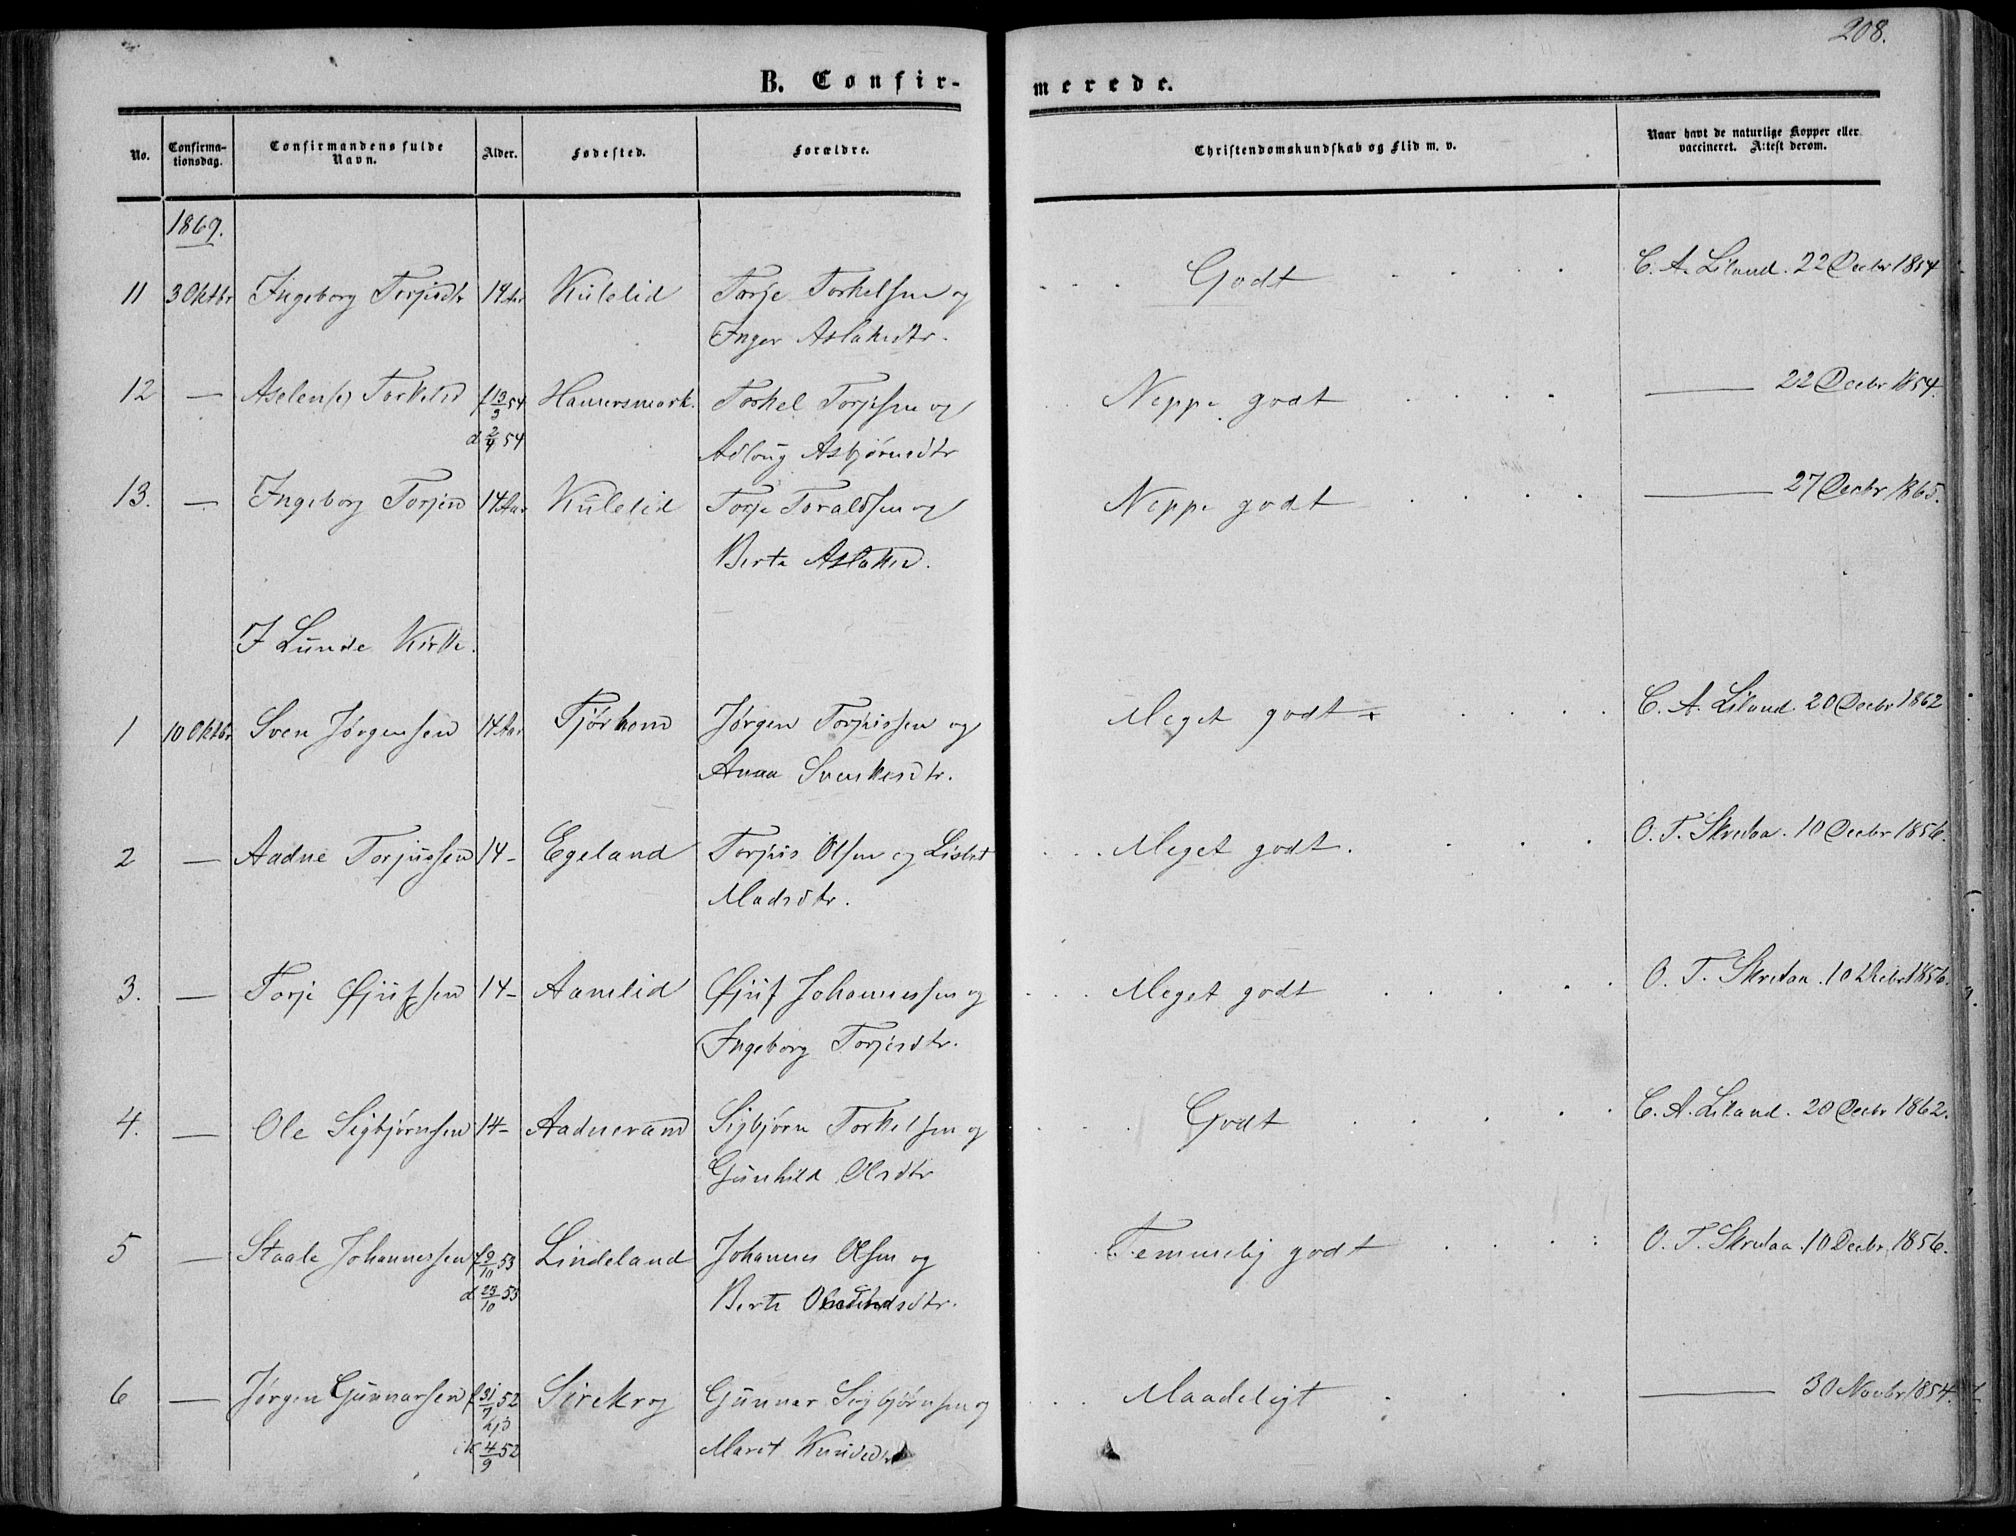 208.
B. Confir-
merede.
No.
Confirma-
tionsdag.
Confirmandens fulde
Navn.
Alder.
Fødested.
Forældre.
Christendomskundskab og Flid m. v.
Naar havt de naturlige Kopper eller
vaccineret. Attest derom.
1869.
11 3 Oktbr Ingeborg Torjesdtr 14 Aar Kulelid Torje Torkelsen og Godt C. A. Liland. 22 Decbr 1854
Inger Aslaksdtr.
12 — Torkelsd f 13/3 54 Torkel Torjesen og Neppe godt — 22 Decbr 1854.
d 2/4 54 Adlaug Asbjørnsdtr
13. — Ingeborg Torjesd 14 Aar Kulelid Torje Toraldsen og Neppe godt — 27 Decbr 1865.
Berte Aslaksd.
I Lunde Kirke.
1 10 Oktbr Sven Jørgensen 14 Aar Tjørhom Jørgen Torjussen og Meget godt C. A. Liland. 20 Decbr 1862
Anna Svenkesdtr.
2 — Aadne Torjussen 14 - Egeland Torjus Olsen og Lisbet Meget godt. O. T. Skredaa. 10 Decbr 1856.
Madsdtr.
3. — Torje Gjufsen 14 - Aamlid Gjuf Johannessen og Meget godt O. T. Skredaa. 10 Decbr 1856.
Ingeborg Torjesdtr.
4. — Ole Sigbjørnsen 14 - Aadneram Sigbjørn Torkelsen og Godt C. A. Liland. 20 Decbr 1862.
Gunhild Olsdtr
5 — Staale Johannessen f 9/10 53 Lindeland Johannes Olsen og Temmelig godt O. T. Skredaa. 10 Decbr 1856.
d 23/10 53 Berte
6 — Jørgen Gunnarsen f 31/7 52 Sirekrog Gunnar Sigbjørnsen og Maadeligt — 30 Novbr 1854.
hjd
i K 4/9 52 Maret Knudsdtr